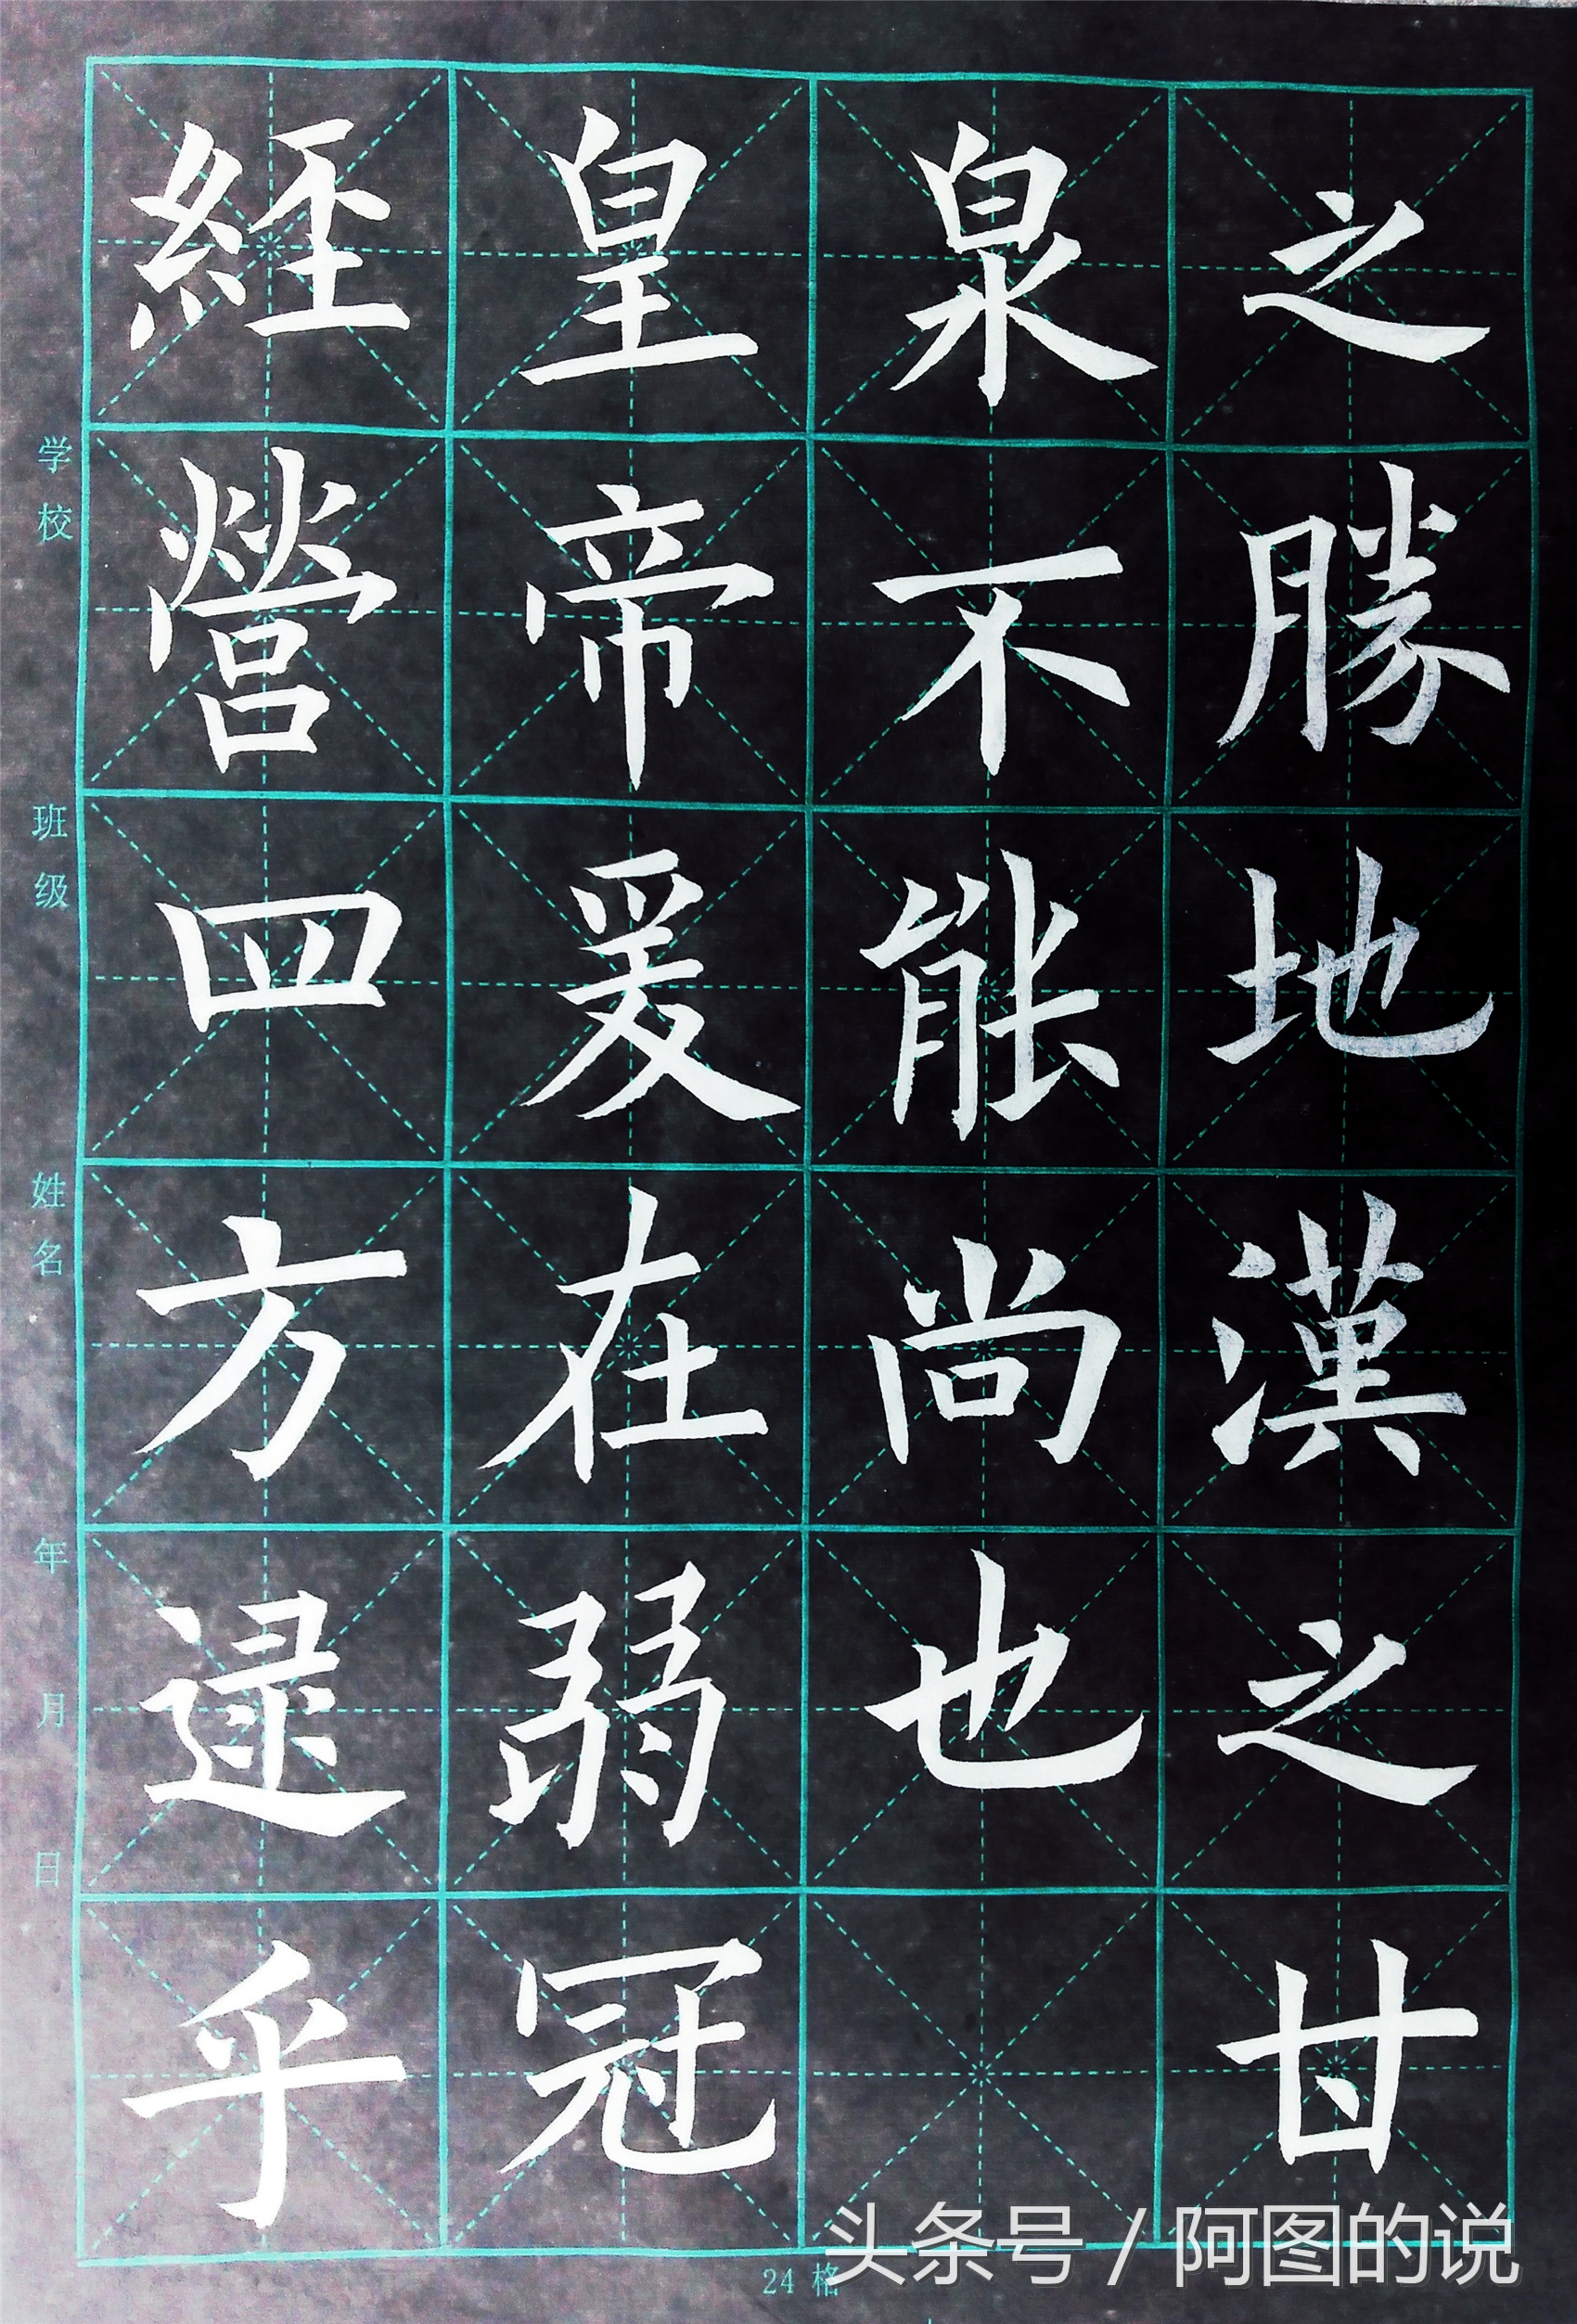 之勝地漢之甘
泉不能尚也
皇帝爰在弱冠
經營四方逯乎
学校
班级
姓名
年
月
日
24 格
头条号 / 阿图的说